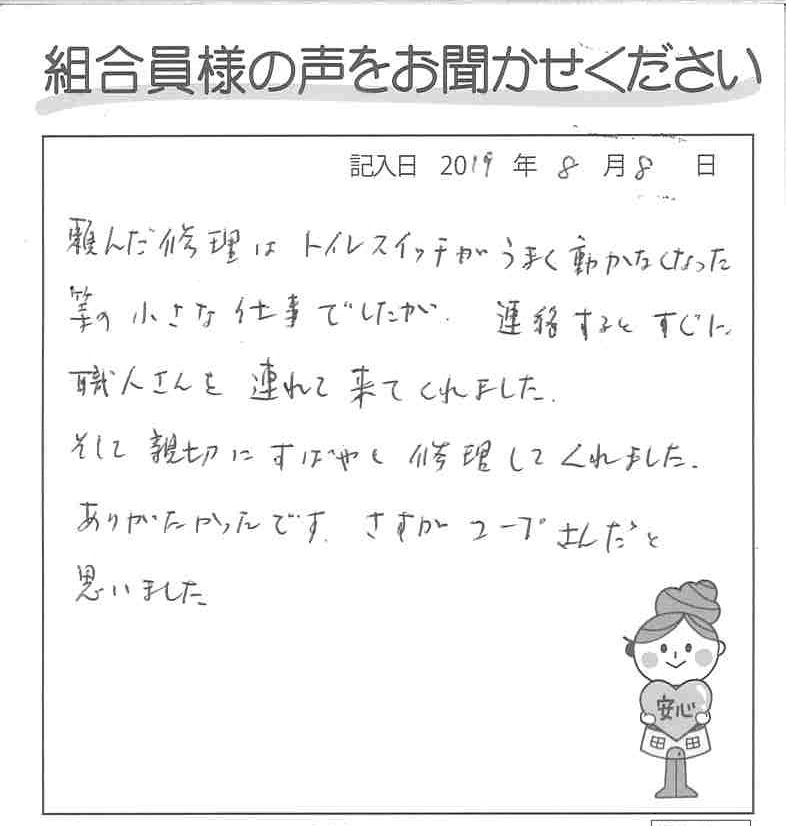 組合員様の声をお聞かせください
記入日 2019 年 8 月 8 日
頼んだ修理は トイレスイッチが うまく動かなくなった
等の小さな仕事でしたが. 連絡するとすぐに
職人さんを連れて来てくれました.
そして親切にすばやく修理してくれました.
ありがたかったです. さすがコープさんだと
思いました
安心